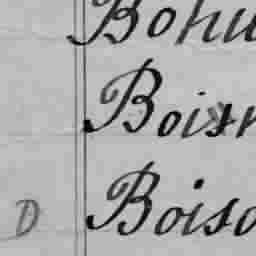 Bohu
Bois
D Boiso